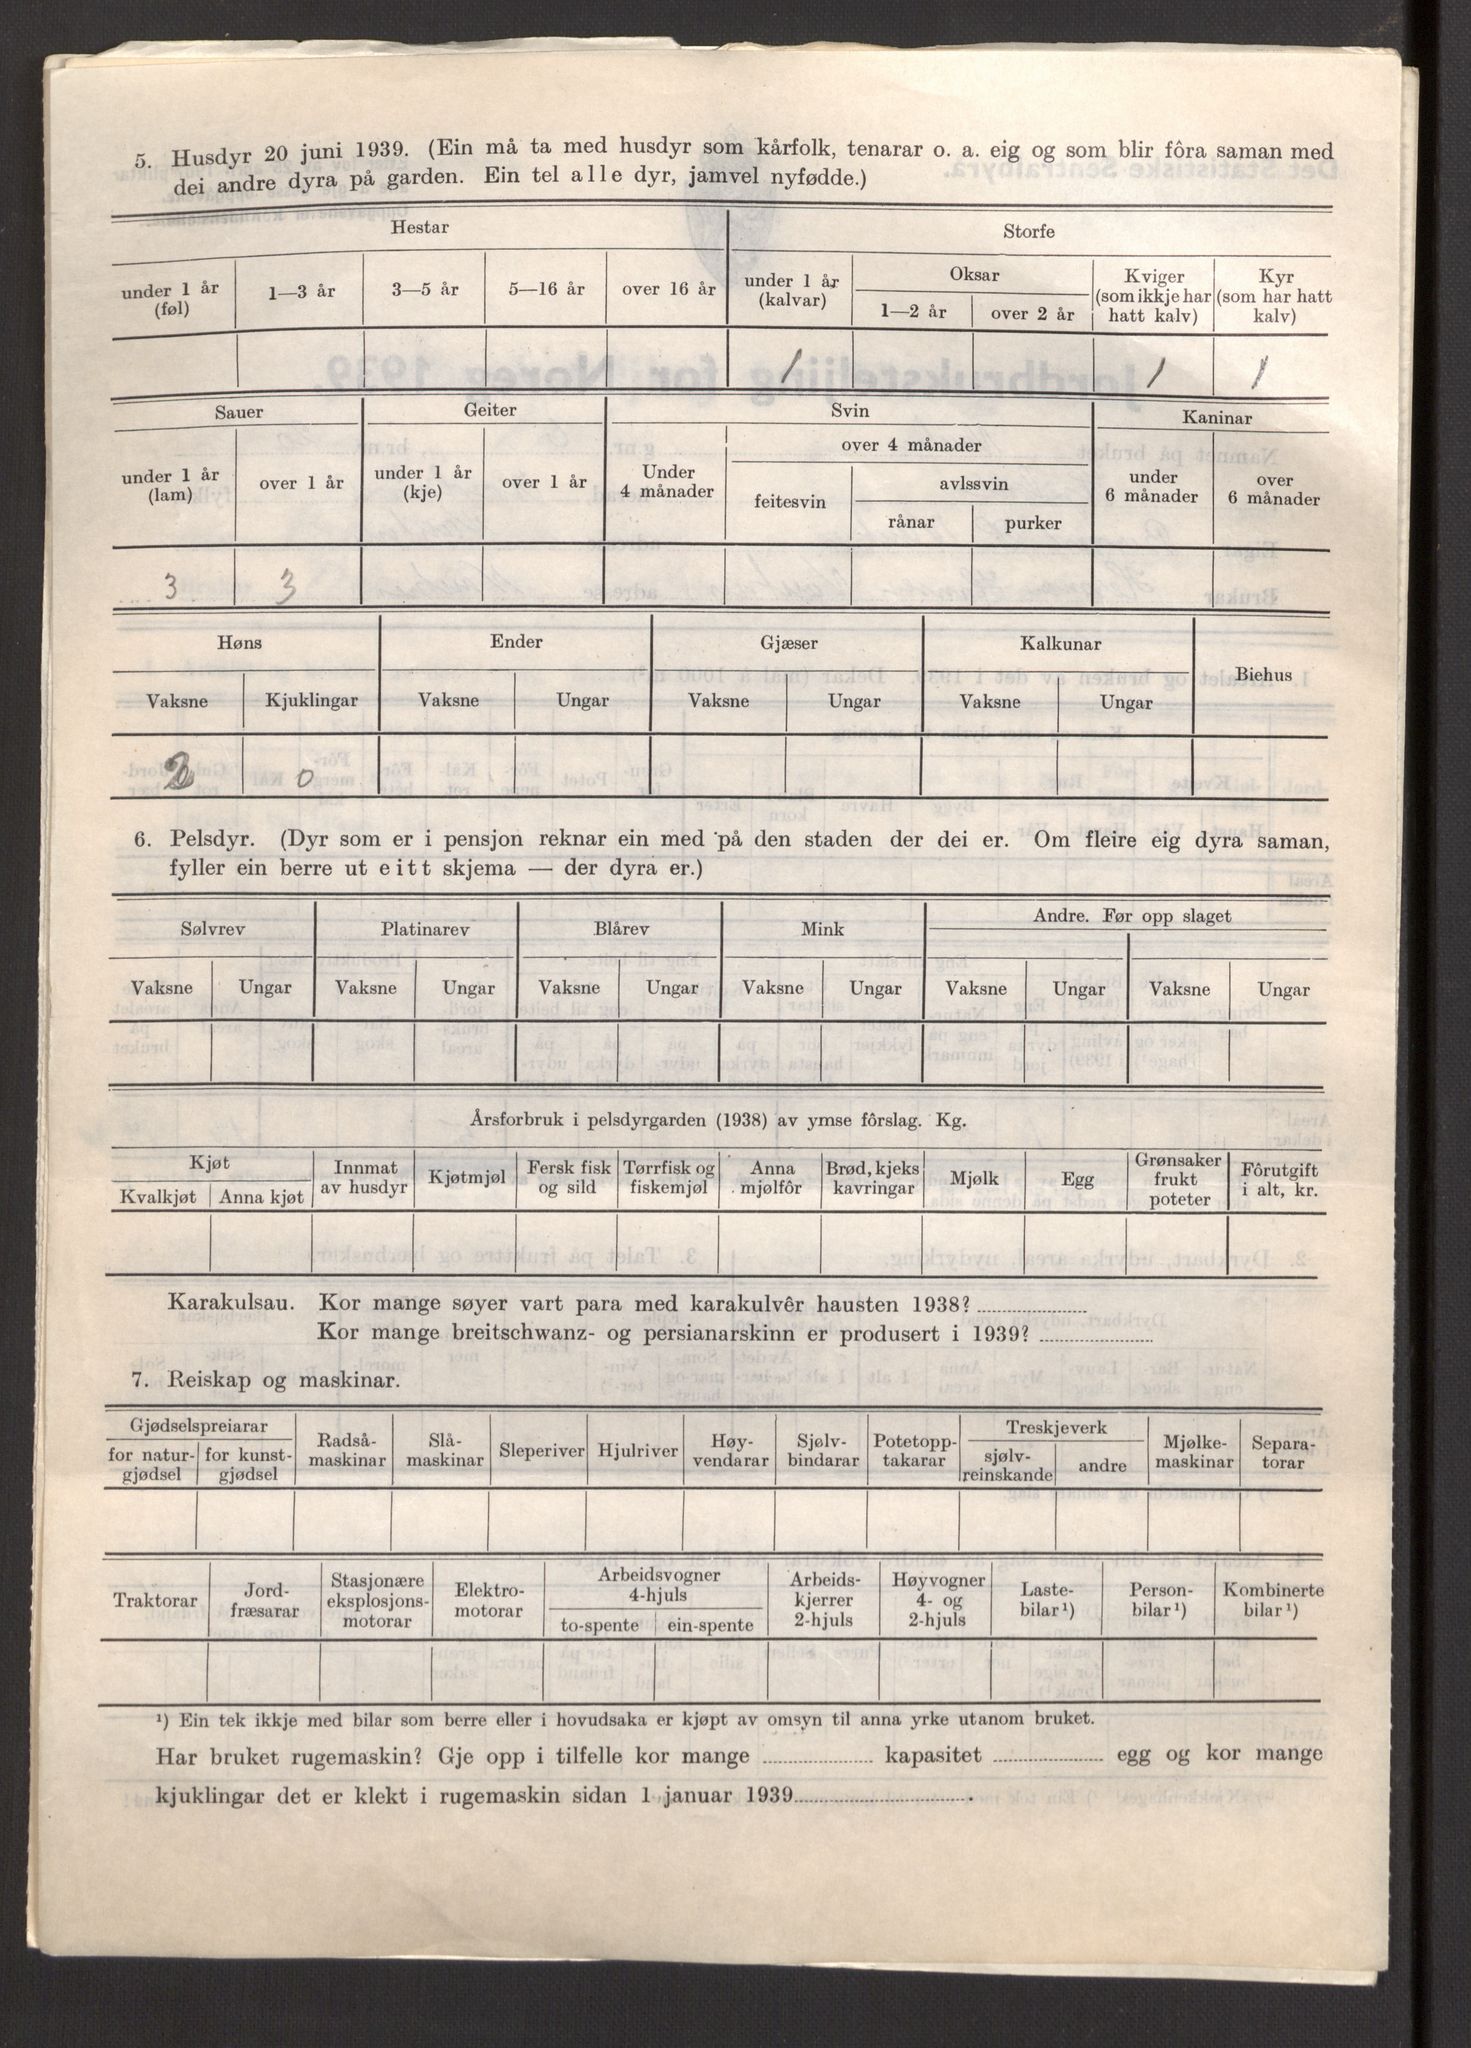 5. Husdyr 20 juni 1939. (Ein må ta med husdyr som kårfolk, tenarar o. a. eig og som blir fôra saman med
dei andre dyra på garden. Ein tel alle dyr, jamvel nyfødde.)
Hestar Storfe
under 1 år (føl) 1—3 år 3—5 år 5—16 år over 16 år under 1 år (kalvar) Oksar 1—2 år over 2 år Kviger (som ikkje har hatt kalv) Kyr (som har hatt kalv)
1 1 1
Sauer Geiter Svin Kaninar
under 1 år (lam) over 1 år under 1 år (kje) over 1 år Under 4 månader over 4 månader feitesvin avlssvin rånar purker under 6 månader over 6 månader
3 3
Høns Ender Gjæser Kalkunar Biehus
Vaksne Kjuklingar Vaksne Ungar Vaksne Ungar Vaksne Ungar
0
6. Pelsdyr. (Dyr som er i pensjon reknar ein med på den staden der dei er. Om fleire eig dyra saman,
fyller ein berre ut eitt skjema — der dyra er.)
Sølvrev Platinarev Blårev Mink Andre. Før opp slaget
Vaksne Ungar Vaksne Ungar Vaksne Ungar Vaksne Ungar Vaksne Ungar Vaksne Ungar
Årsforbruk i pelsdyrgarden (1938) av ymse fôrslag. Kg.
Kjøt Kvalkjøt Anna kjøt Innmat av husdyr Kjøtmjøl Fersk fisk og sild Tørrfisk og fiskemjøl Anna mjølfôr Brød, kjeks kavringar Mjølk Egg Grønsaker frukt poteter Fôrutgift i alt, kr.
Karakulsau. Kor mange søyer vart para med karakulvêr hausten 1938?
Kor mange breitschwanz- og persianarskinn er produsert i 1939?
7. Reiskap og maskinar.
Gjødselspreiarar for natur- gjødsel for kunst- gjødsel Radså- maskinar Slå- maskinar Sleperiver Hjulriver Høy- vendarar Sjølv- bindarar Potetopp- takarar Treskjeverk sjølv- reinskande andre Mjølke- maskinar Separa- torar
Traktorar Jord- fræsarar Stasjonære eksplosjons- motorar Elektro- motorar Arbeidsvogner 4-hjuls to-spente ein-spente Arbeids- kjerrer 2-hjuls Høyvogner 4- og 2-hjuls Laste- bilar¹) Person- bilar¹) Kombinerte bilar¹)
¹) Ein tek ikkje med bilar som berre eller i hovudsaka er kjøpt av omsyn til anna yrke utanom bruket.
Har bruket rugemaskin? Gje opp i tilfelle kor mange kapasitet egg og kor mange
kjuklingar det er klekt i rugemaskin sidan 1 januar 1939 .